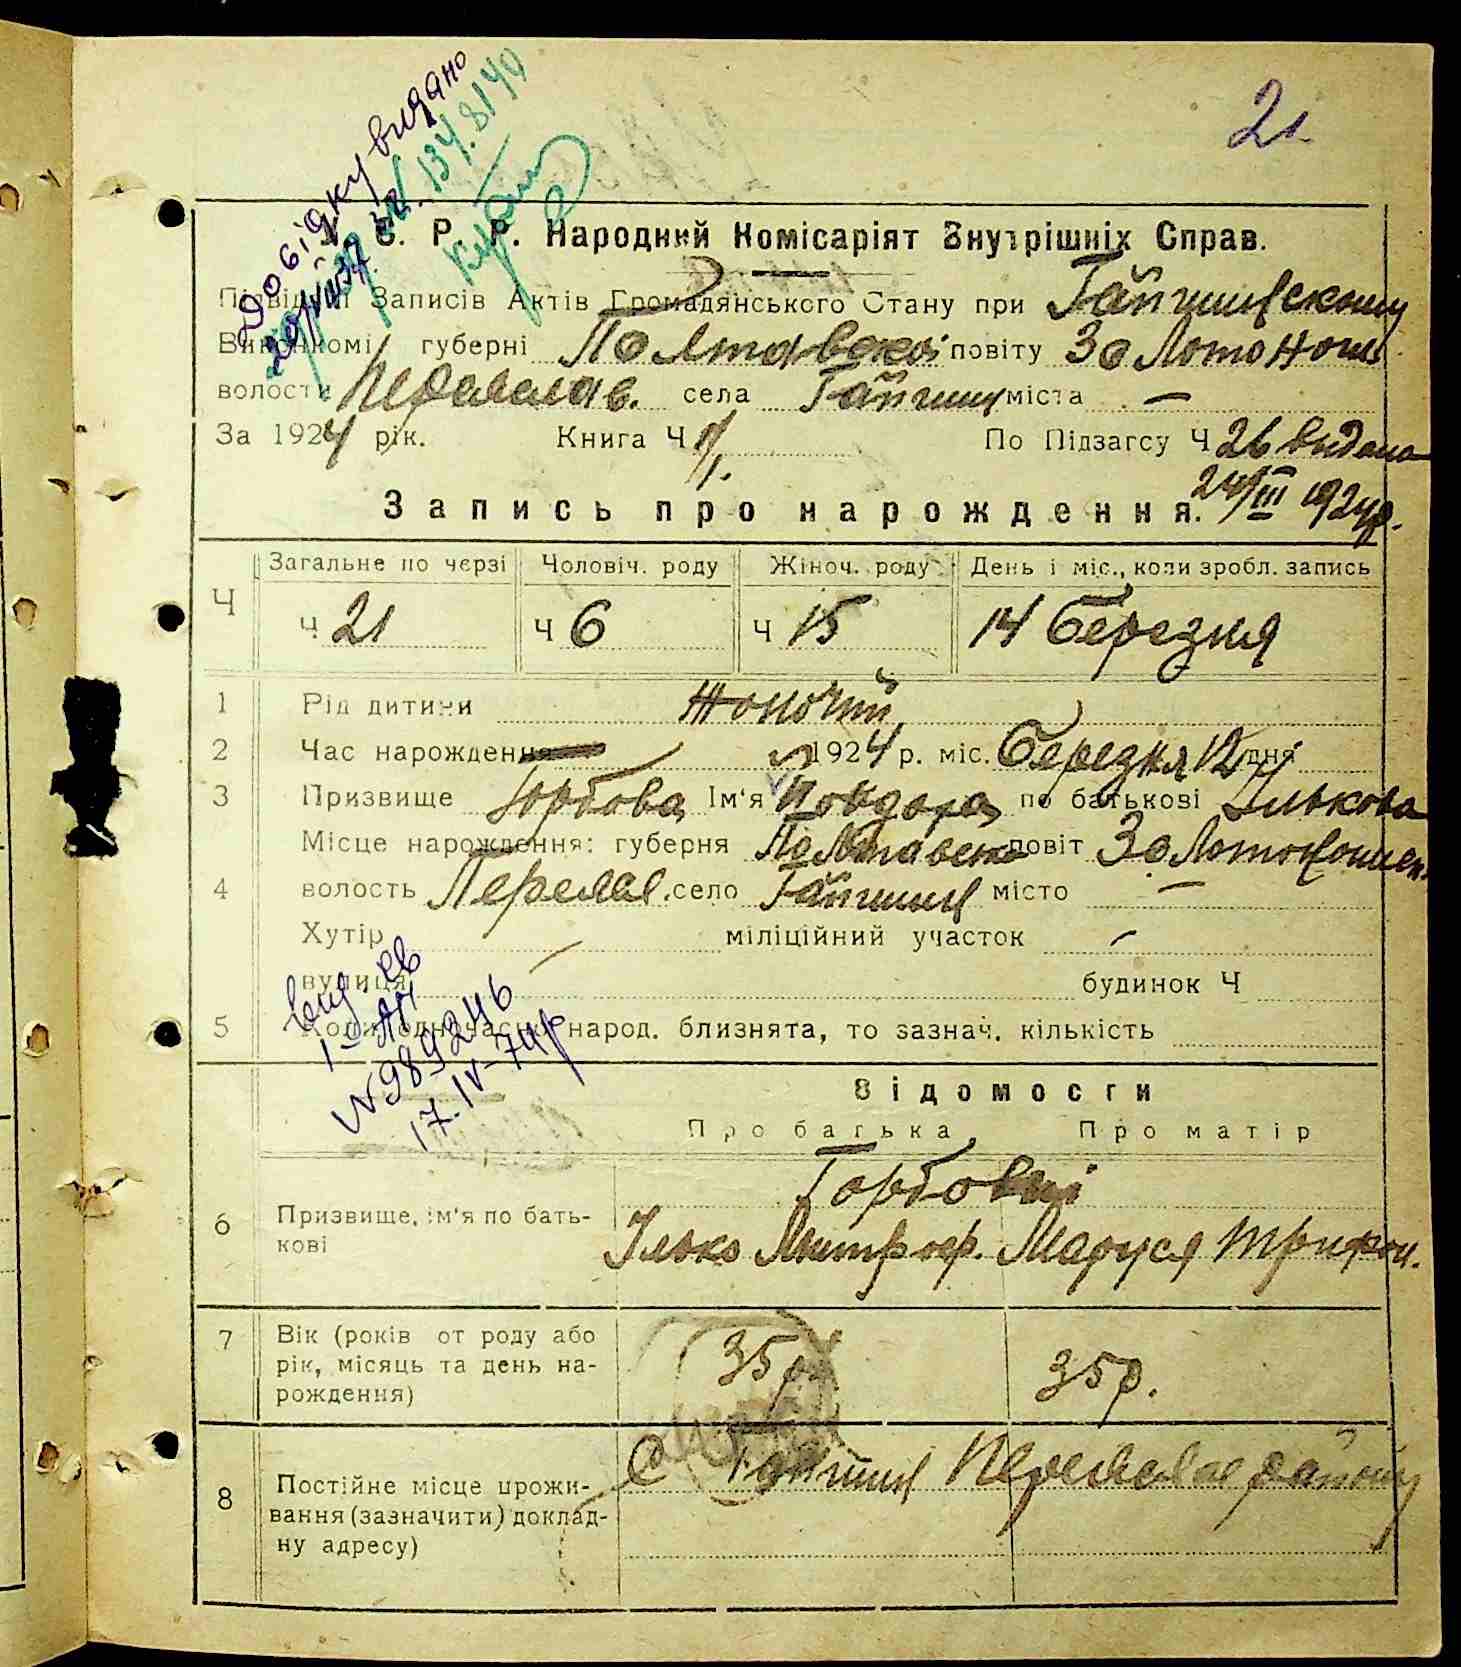 21
Довідку видано
С. Р. Р. Народний Комісаріят Внутрішніх Справ.
Підвідділ Записів Актів Громадянського Стану при Гайшинскому
Виконкомі губерні Полтавскої повіту Золотонош
волости Переяслав. села Гайшин міста —
За 1924 рік. Книга Ч 1/1. По Підзагсу Ч 26 видана
24/III 1924р.
Запись про нарождення.
Ч Загальне по черзі Чоловіч. роду Жіноч. роду День і міс., коли зробл. запись
Ч 21 Ч 6 Ч 15 14 березня
1 Рід дитини Жоночій
2 Час нарождення 1924 р. міс. березня 12 дня
3 Призвище Горбова Ім'я по батькові Илькова
Місце нарождення: губерня Полтавск повіт Золотоношск.
4 волость Переяс. село Гайшин місто —
Хутір — міліційний участок —
вулиця будинок Ч
5 Коли одночасно народ. близнята, то зазнач. кількість
вид. св
I-
№989246
17.IV-74р
Відомости
Про батька Про матір
Горбовиі
6 Призвище, ім'я по бать-
кові
Ілько Митроф. Маруся Трифон.
7 Вік (років от роду або
рік, місяць та день на-
рождення)
35р. 35р.
8 Постійне місце прожи-
вання (зазначити) доклад-
ну адресу)
С Гайшин Переяслав району